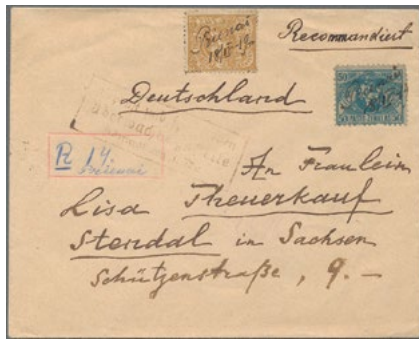 Recommandiert
18/V-19
Deutschland
R 14.
An Fraulein
Lisa Theuerkauf
Stendal in Sachsen
Schützenstraße, 9.-